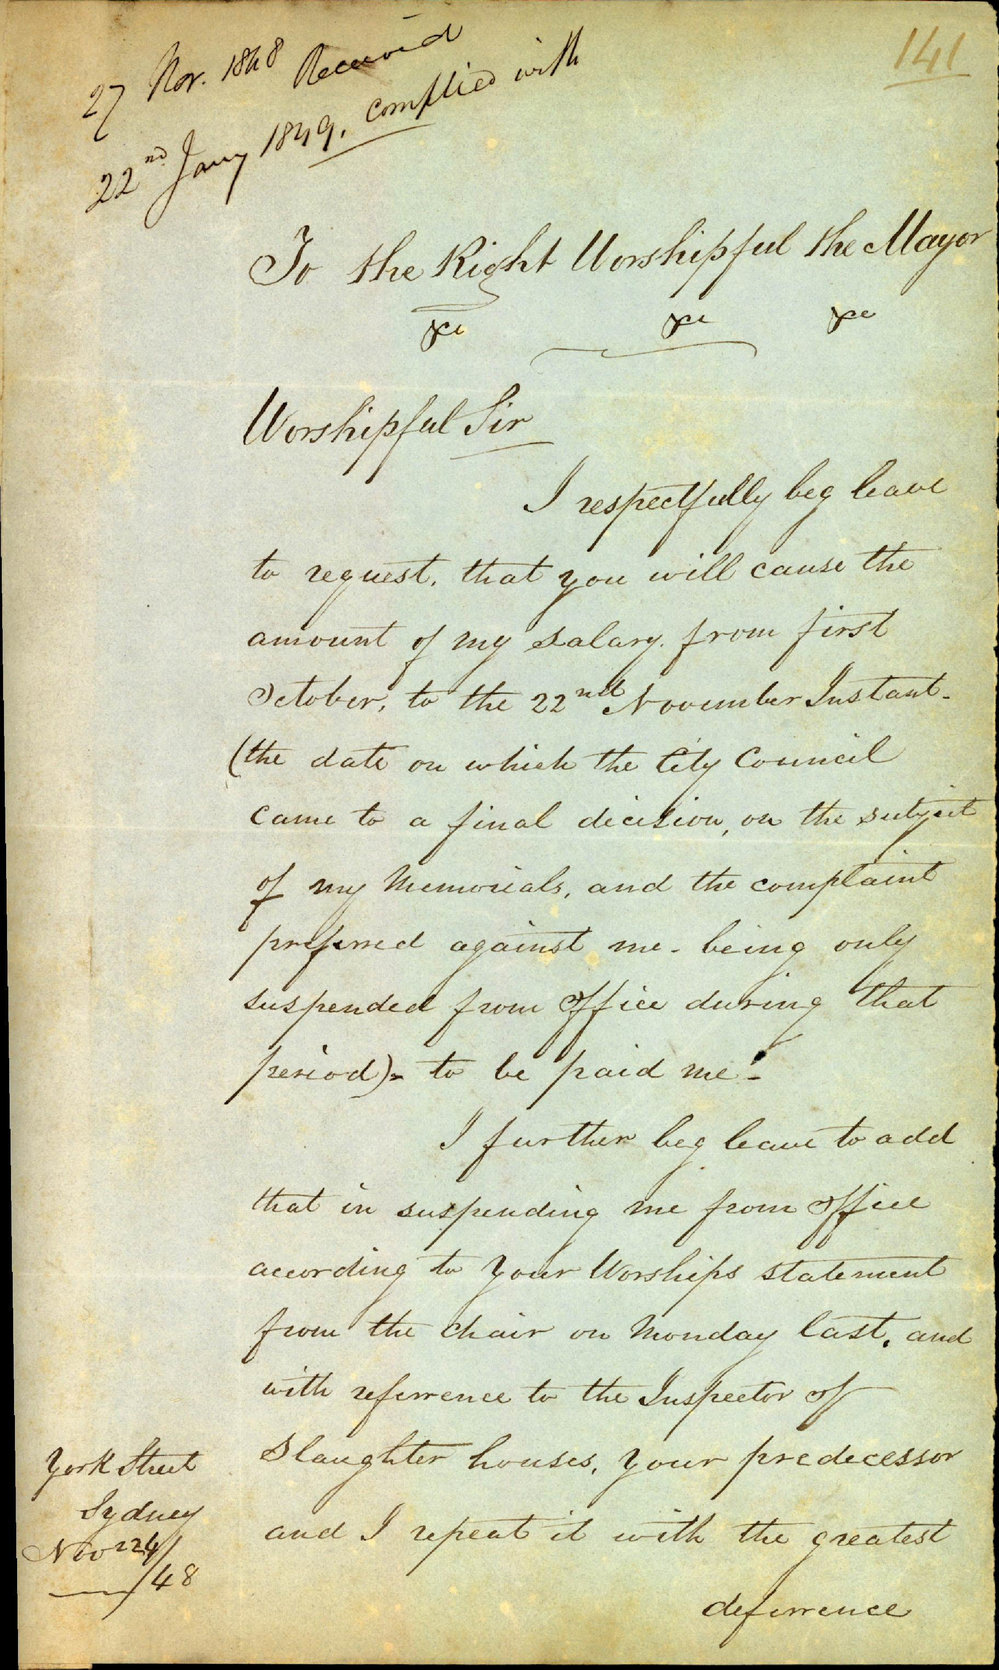 27 Nov. 1848 Received
22nd Jany 1849. complied with
141
To the Right Worshipful the Mayor
&c &c &c
Worshipful Sir
I respectfully beg leave
to request, that you will cause the
amount of my salary. from first
October, to the 22nd November Instant-
(the date on which the City Council
came to a final decision, on the subject
of my Memorials, and the complaint
preferred against me - being only
suspended from office during that
period) - to be paid me -
I further beg leave to add
that in suspending me from office
according to Your Worships statement
from the chair on Monday last, and
with referrence to the Inspector of
Slaughter houses, your predecessor
and I repeat it with the greatest
deferrence
York Street
Sydney
Nov 24/48